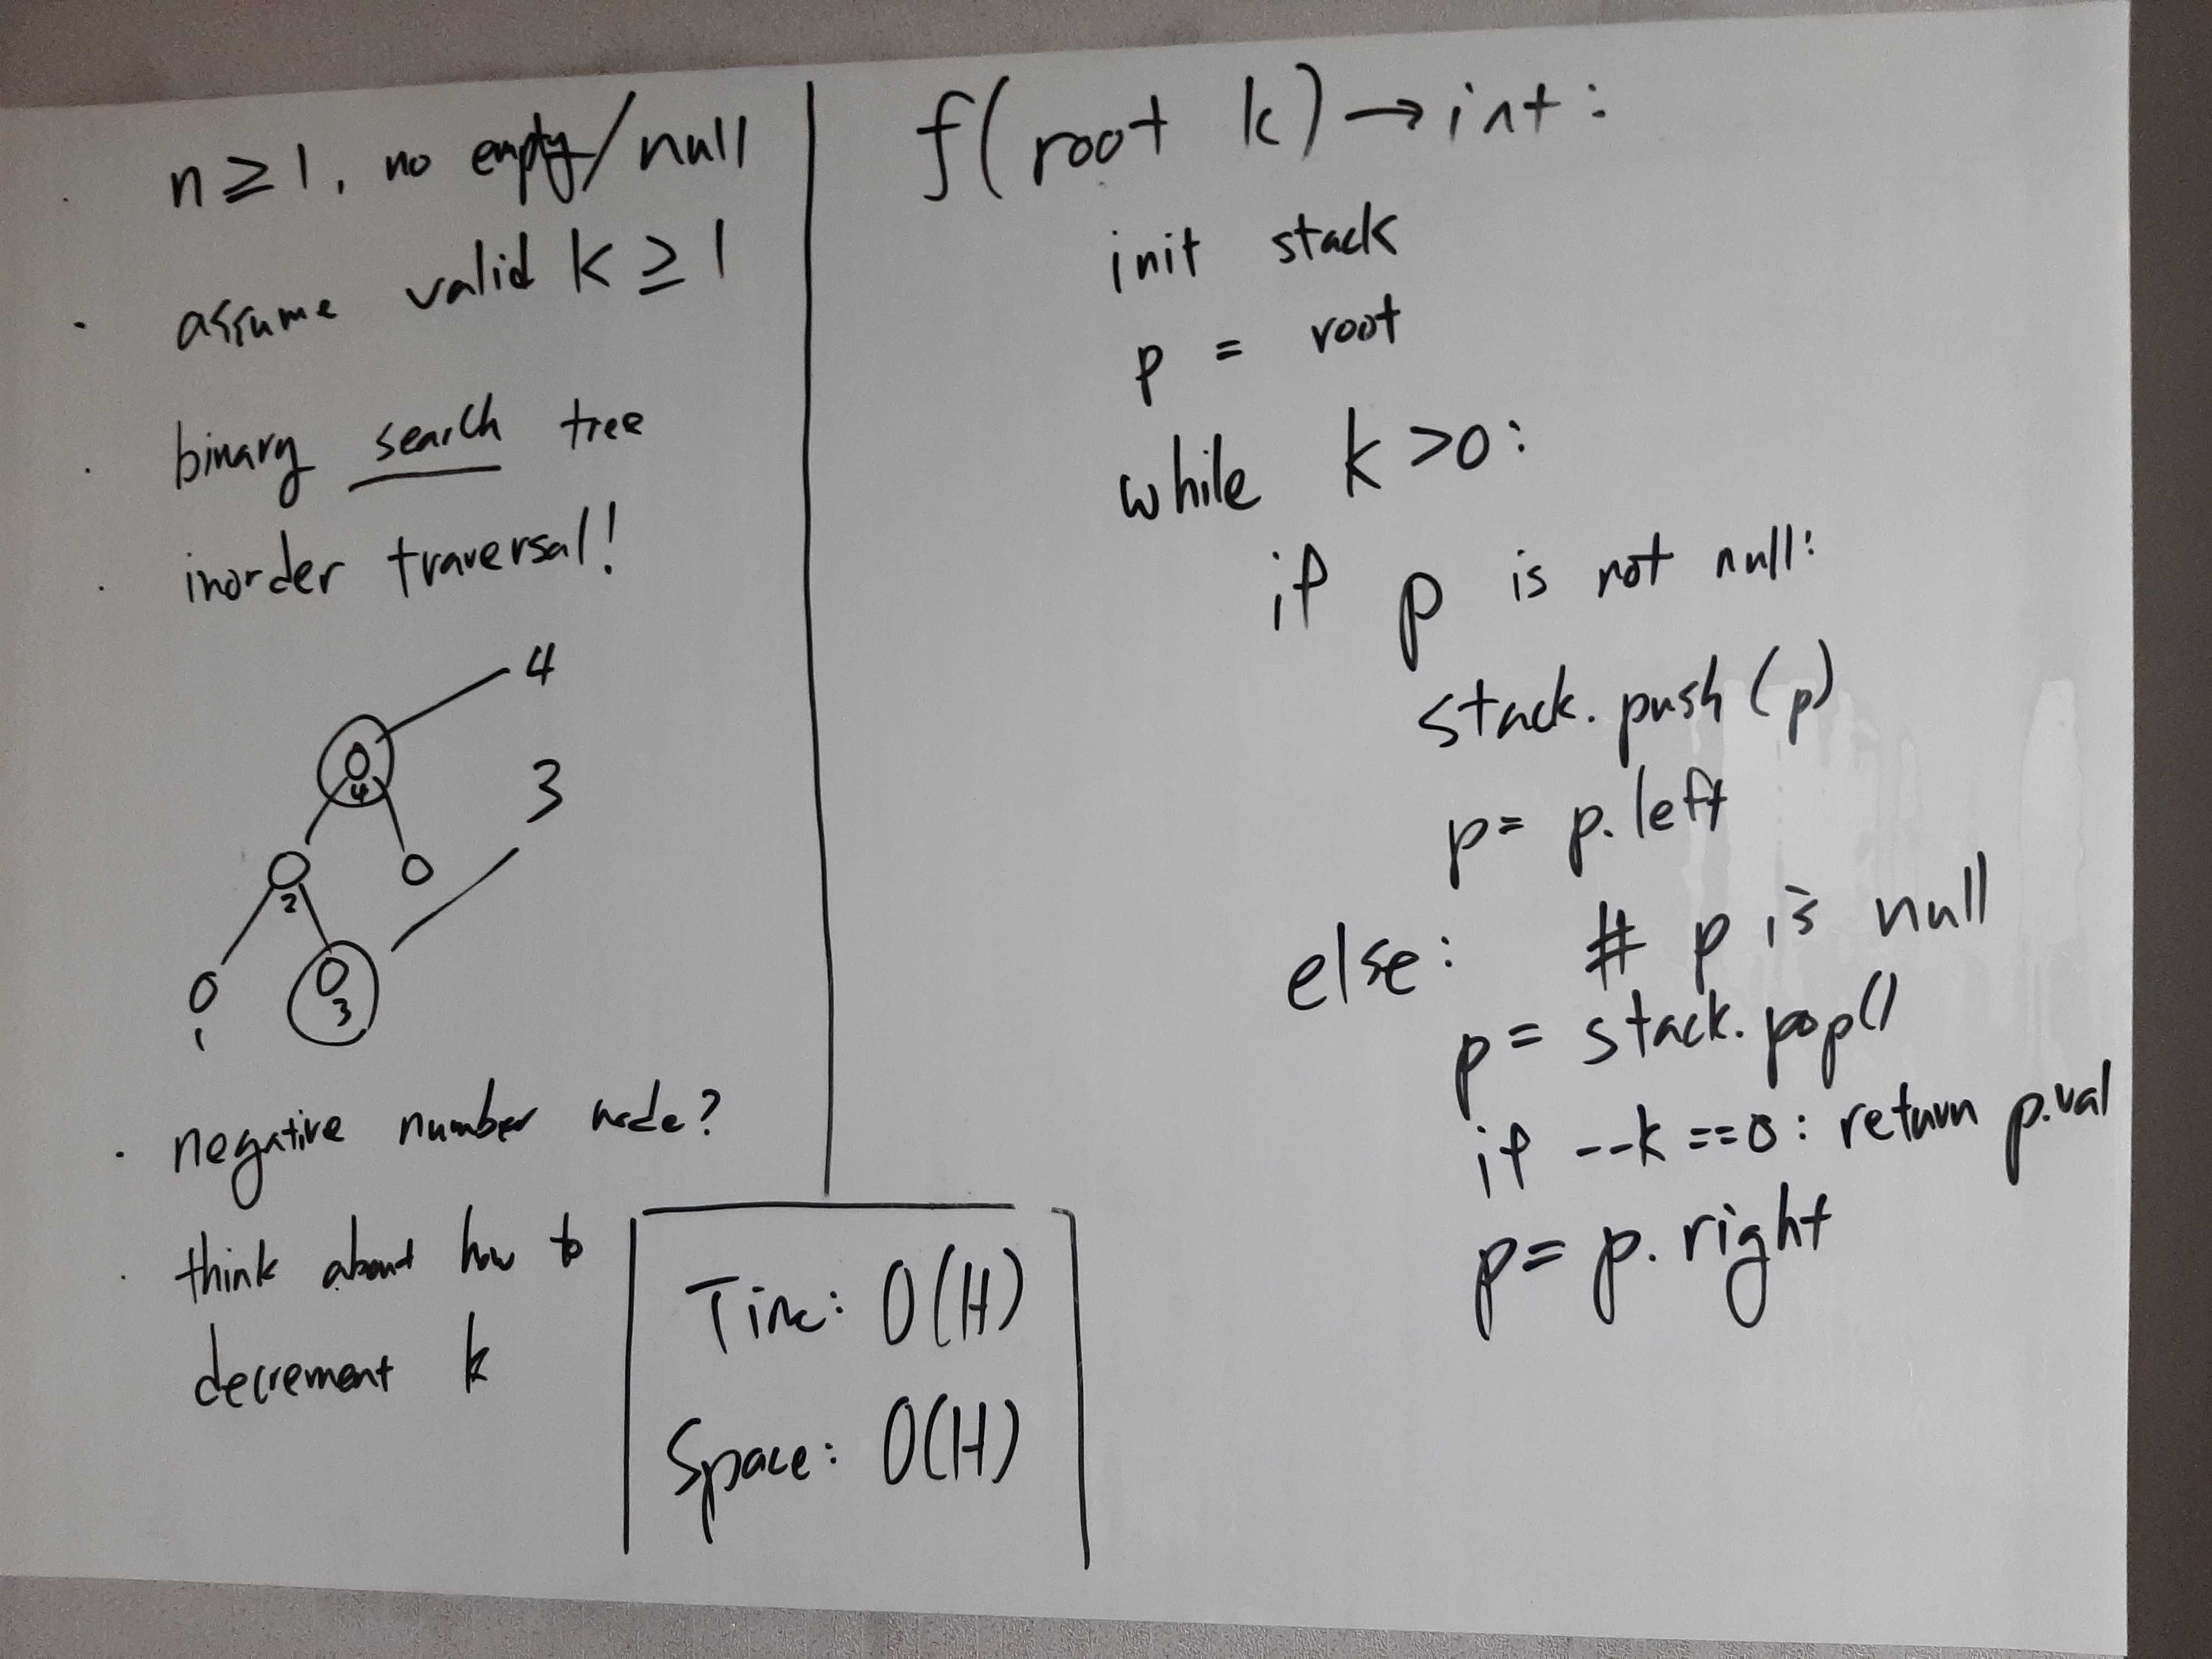 n ≥ 1, no empty/null
assume valid k ≥ 1
binary search tree
inorder traversal!
4
4
3
2
3
1
negative number node?
think about how to
decrement k
Time: O(H)
Space: O(H)
f(root k) → int:
init stack
p = root
while k >0:
if p is not null:
stack.push(p)
p= p.left
else: # p is null
p= stack.pop()
if --k ==0: return p.val
p= p.right